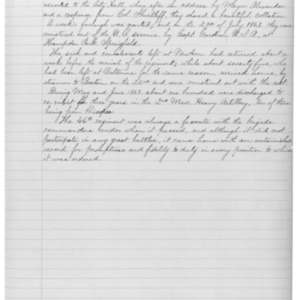 escorted to the City Hall, where after an address by Mayor Alexander
and a response from Col. Shurtleff, they shared a bountiful collation.
A week's furlough was granted, and on the 29th of July 1863 was
mustered out of the U.S. service by Capt. Gardner, U.S.A. at
Hampden Park, Springfield.
The sick and convalescent left at Newbern had returned about a
week before the arrival of the regiment, while about seventy five, who
had been left at Baltimore for the same reason, reached home by
steamer to Boston on the and were mustered out with the rest.
During May and June 1863 about one hundred were discharged to
re-enlist for three years in the 2nd Mass. Heavy Artillery. Ten of these
The 46th regiment was always a favorite with the brigade
commanders under whom it passed, and although it did not
participate in any great battles, it came home with an untarnished
record for promptness and fidelity to duty in every position to which
it was ordered.